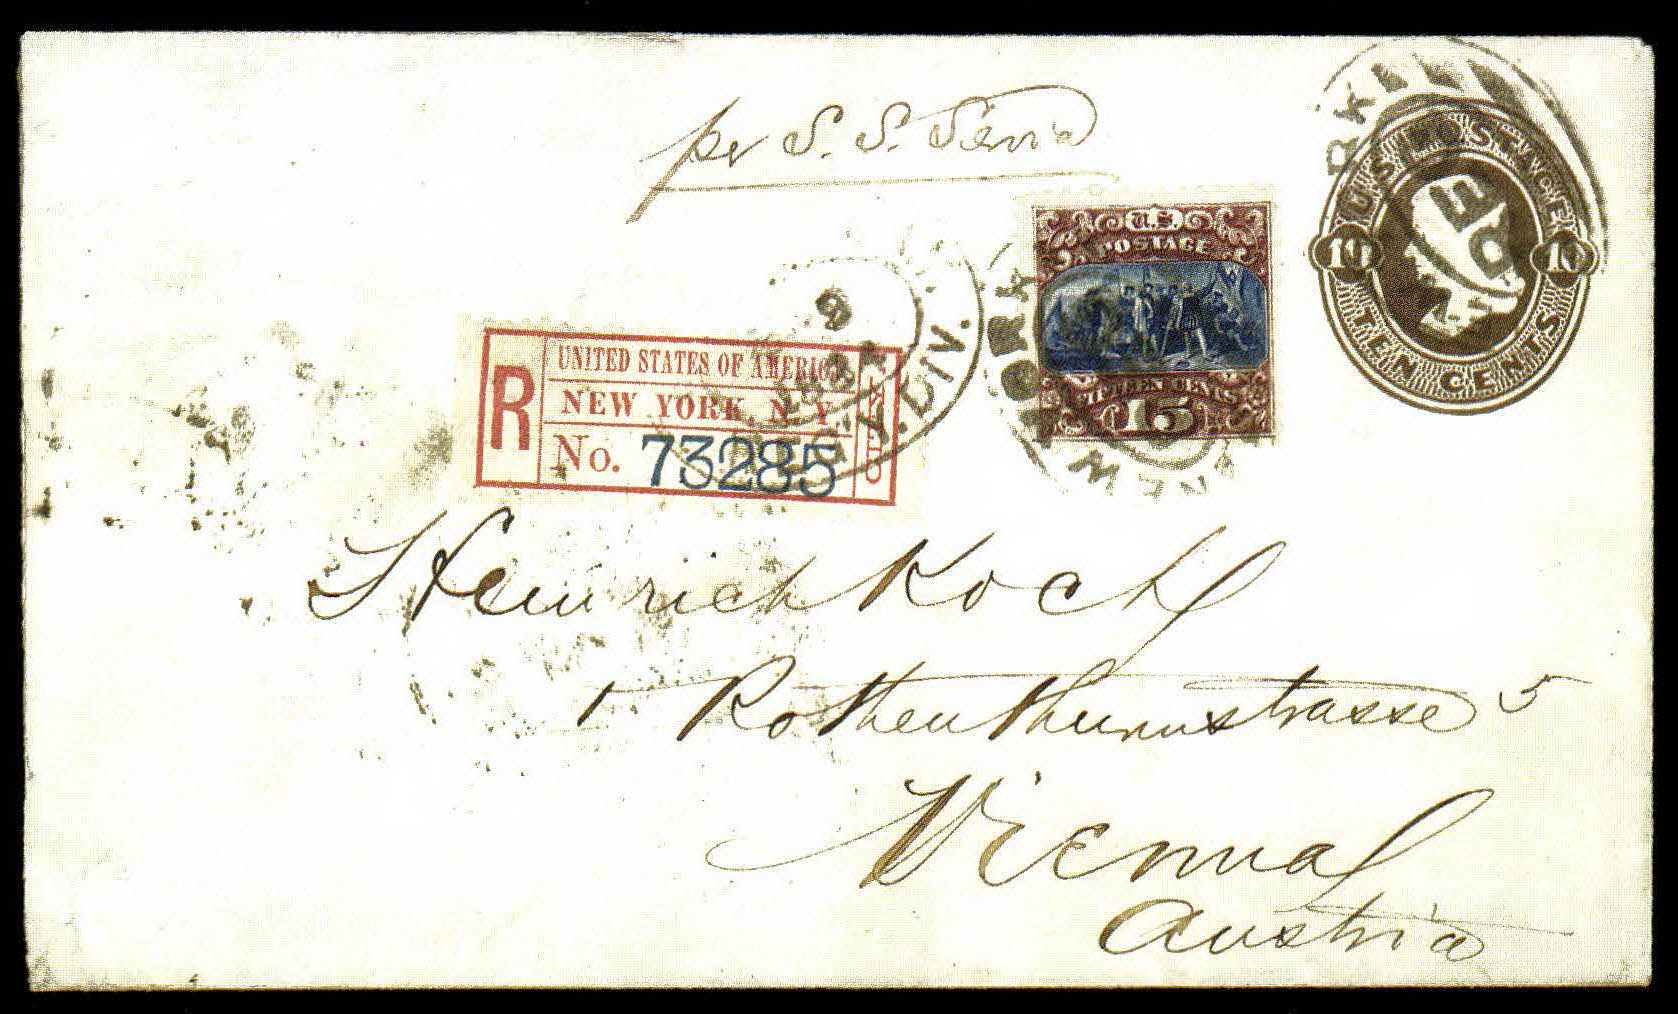 per S. S. Servia
U.S. POSTAGE
10 10
TEN CENTS
U.S.
POSTAGE
FIFTEEN CENTS
15
NEW YORK
R
UNITED STATES OF AMERICA.
NEW YORK, N. Y.
No. 73285
CITY
DIV.
Heinrich Koch
1 Rothenthurmstrasse 5
Vienna
Austria